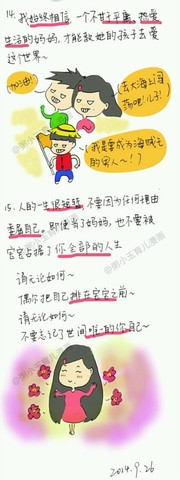 14. 我始终相信,一个不甘于平庸、热爱
生活的妈妈,才能教她的孩子去爱
这个世界~
加油!
去大海上闯
荡吧!儿子!
我是要成为海贼王
的男人~!
15. 人的一生很短暂,不要因为任何理由
委屈自己,即使当了妈妈,也不要被
宝宝占据了你全部的人生
请无论如何~
偶尔把自己排在宝宝之前~
请无论如何~
不要忘记了世间唯一的你自己~
@粥小玉育儿漫画
2014.9.26